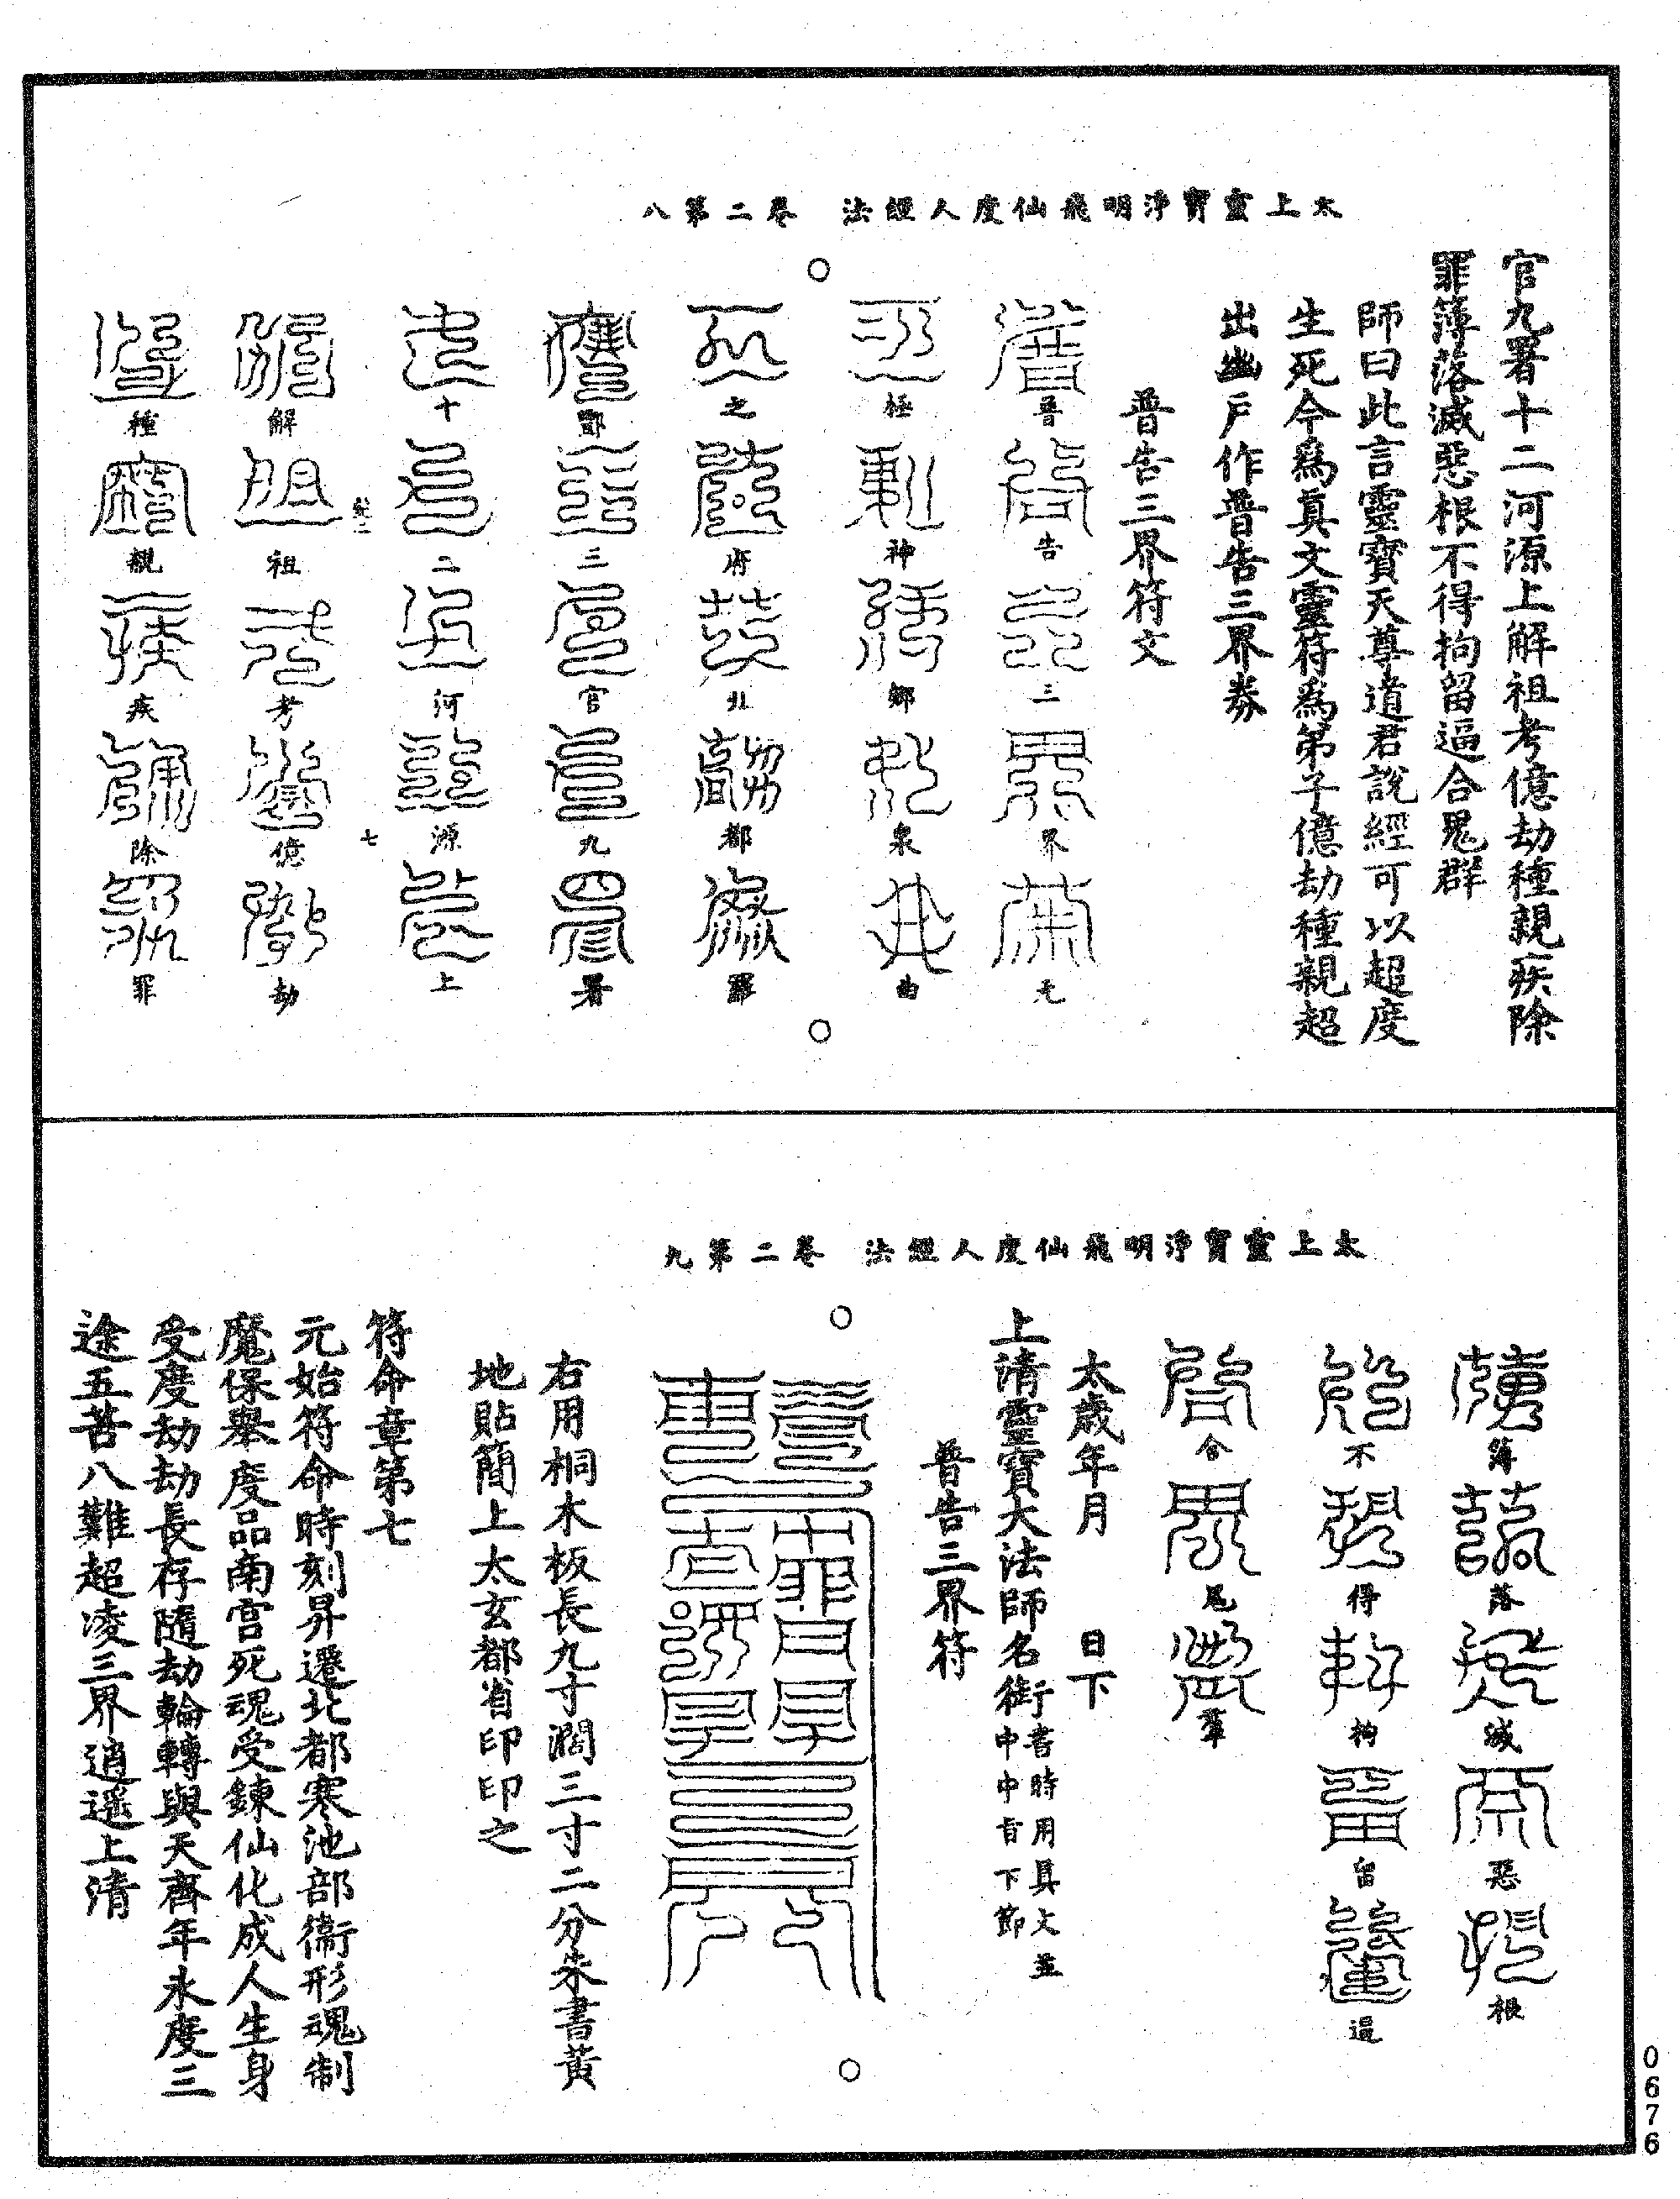 太上靈寶淨明飛仙度人經法 卷二第八
官九署十二河源上解祖考億劫種親疾除
罪簿落滅惡根不得拘留逼合鬼群
師曰此言靈寶天尊道君說經可以超度
生死今為真文靈符為弟子億劫種親超
出幽戶作普告三界券
普告三界符文
普告三界无
極神鄉泉曲
之府北都羅
酆三官九署
十二河源上
七
解祖考億劫
種親疾除罪
太上靈寶淨明飛仙度人經法 卷二第九
簿落滅惡根
不得拘留逼
合鬼羣
太歲年月 日下
上清靈寶大法師名銜書時用具文並中中中旨下節
普告三界符
右用桐木板長九寸濶三寸二分朱書黃
地貼簡上太玄都省印印之
符命章第七
元始符命時刻昇遷北都寒池部衛形魂制
魔保舉度品南宮死魂受鍊仙化成人生身
受度劫劫長存隨劫輪轉與天齊年永度三
途五苦八難超凌三界逍遥上清
0676